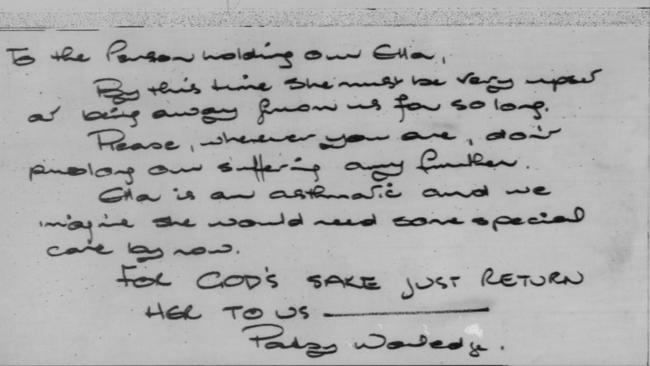 To the Person holding our Eloa,
By this time she must be very upset
at being away from us for so long.
Please, wherever you are, don't
prolong our suffering any further.
Eloa is an asthmatic and we
imagine she would need some special
care by now.
FOR GOD'S SAKE JUST RETURN
HER TO US
Patsy Worledge.